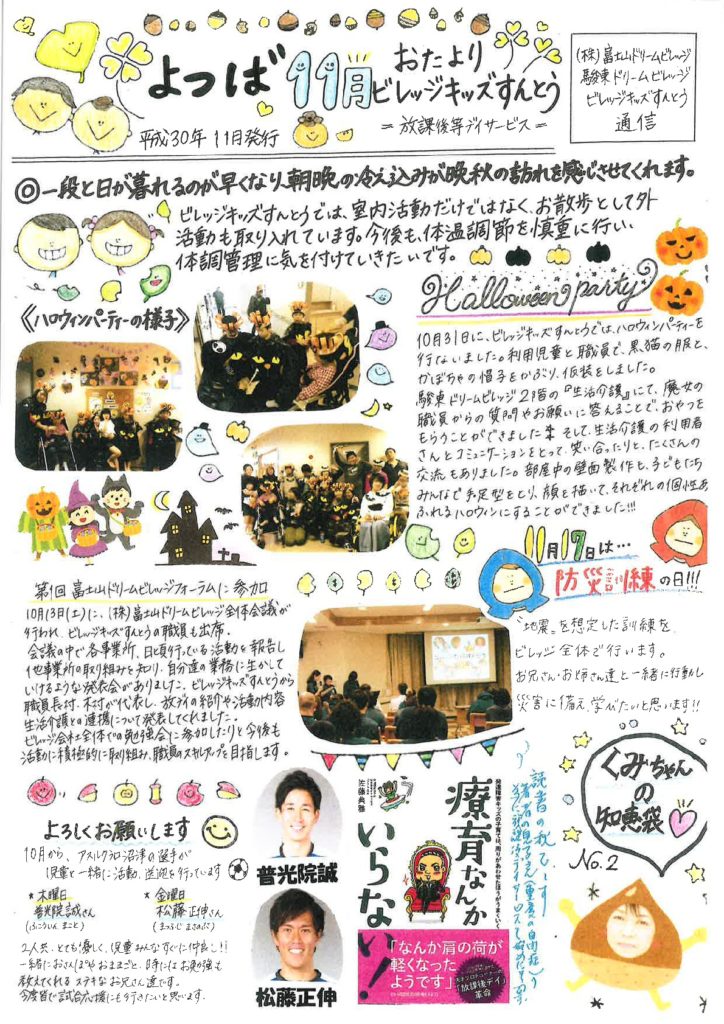 よつば 11月
おたより
ビレッジキッズすんとう
=放課後等デイサービス=
平成30年11月発行
(株)富士山ドリームビレッジ
駿東ドリームビレッジ
ビレッジキッズすんとう
通信
◎一段と日が暮れるのが早くなり、朝晩の冷え込みが晩秋の訪れを感じさせてくれます。
ビレッジキッズすんとうでは、室内活動だけではなく、お散歩として外
活動も取り入れています。今後も、体温調節を慎重に行い、
体調管理に気を付けていきたいです。
《ハロウィンパーティーの様子》
Halloween party
10月31日に、ビレッジキッズすんとうでは、ハロウィンパーティーを
行ないました。利用児童と職員で、黒猫の服と、
かぼちゃの帽子をかぶり、仮装をしました。
駿東ドリームビレッジ2階の『生活介護』にて、魔女の
職員からの質問やお願いに答えることで、おやつを
もらうことができました そして、生活介護の利用者
さんとコミュニケーションをとって、笑い合ったりと、たくさんの
交流もありました。部屋中の壁面製作も、子どもたち
みんなで手足型をとり、顔を描いて、それぞれの個性あ
ふれるハロウィンにすることができました!!!
第1回 富士山ドリームビレッジフォーラムに参加
10月13日(土)に、(株)富士山ドリームビレッジ全体会議が
行われ、ビレッジキッズすんとうの職員も出席。
会議の中で各事業所、日頃行っている活動を報告し
他事業所の取り組みを知り、自分達の業務に生かして
いけるような発表会がありました。ビレッジキッズすんとうから
職員長村、木村が代表し、放デイの紹介や活動内容
生活介護との連携について発表してくれました。
ビレッジ会社全体での勉強会に参加したりと今後も
活動に積極的に取り組み、職員のスキルアップを目指します。
11月19日は…
防災訓練の日!!!
"地震"を想定した訓練を、
ビレッジ全体で行います。
お兄さん・お姉さん達と一緒に行動し
災害に備え、学びたいと思います!!
よろしくお願いします
10月から、アスルクラロ沼津の選手が
児童と一緒に活動、送迎を行っています
★木曜日
普光院誠さん
(ふこういん まこと)
★金曜日
松藤正伸さん
(まつふじ まさのぶ)
2人共、とても優しく、児童みんなすぐに仲良し!!
一緒におさんぽやおままごと、時にはお勉強も
教えてくれるステキなお兄さん達です。
今度皆で試合応援にも行きたいと思います。
普光院誠
松藤正伸
発達障害キッズの子育ては、周りがあわせたほうがうまくいく
療育なんか
いらない!
佐藤典雅
「なんか肩の荷が
軽くなった
ようです」
「放課後デイ」
革命
読書の秋でーす
くみちゃん
の
知恵袋
No.2